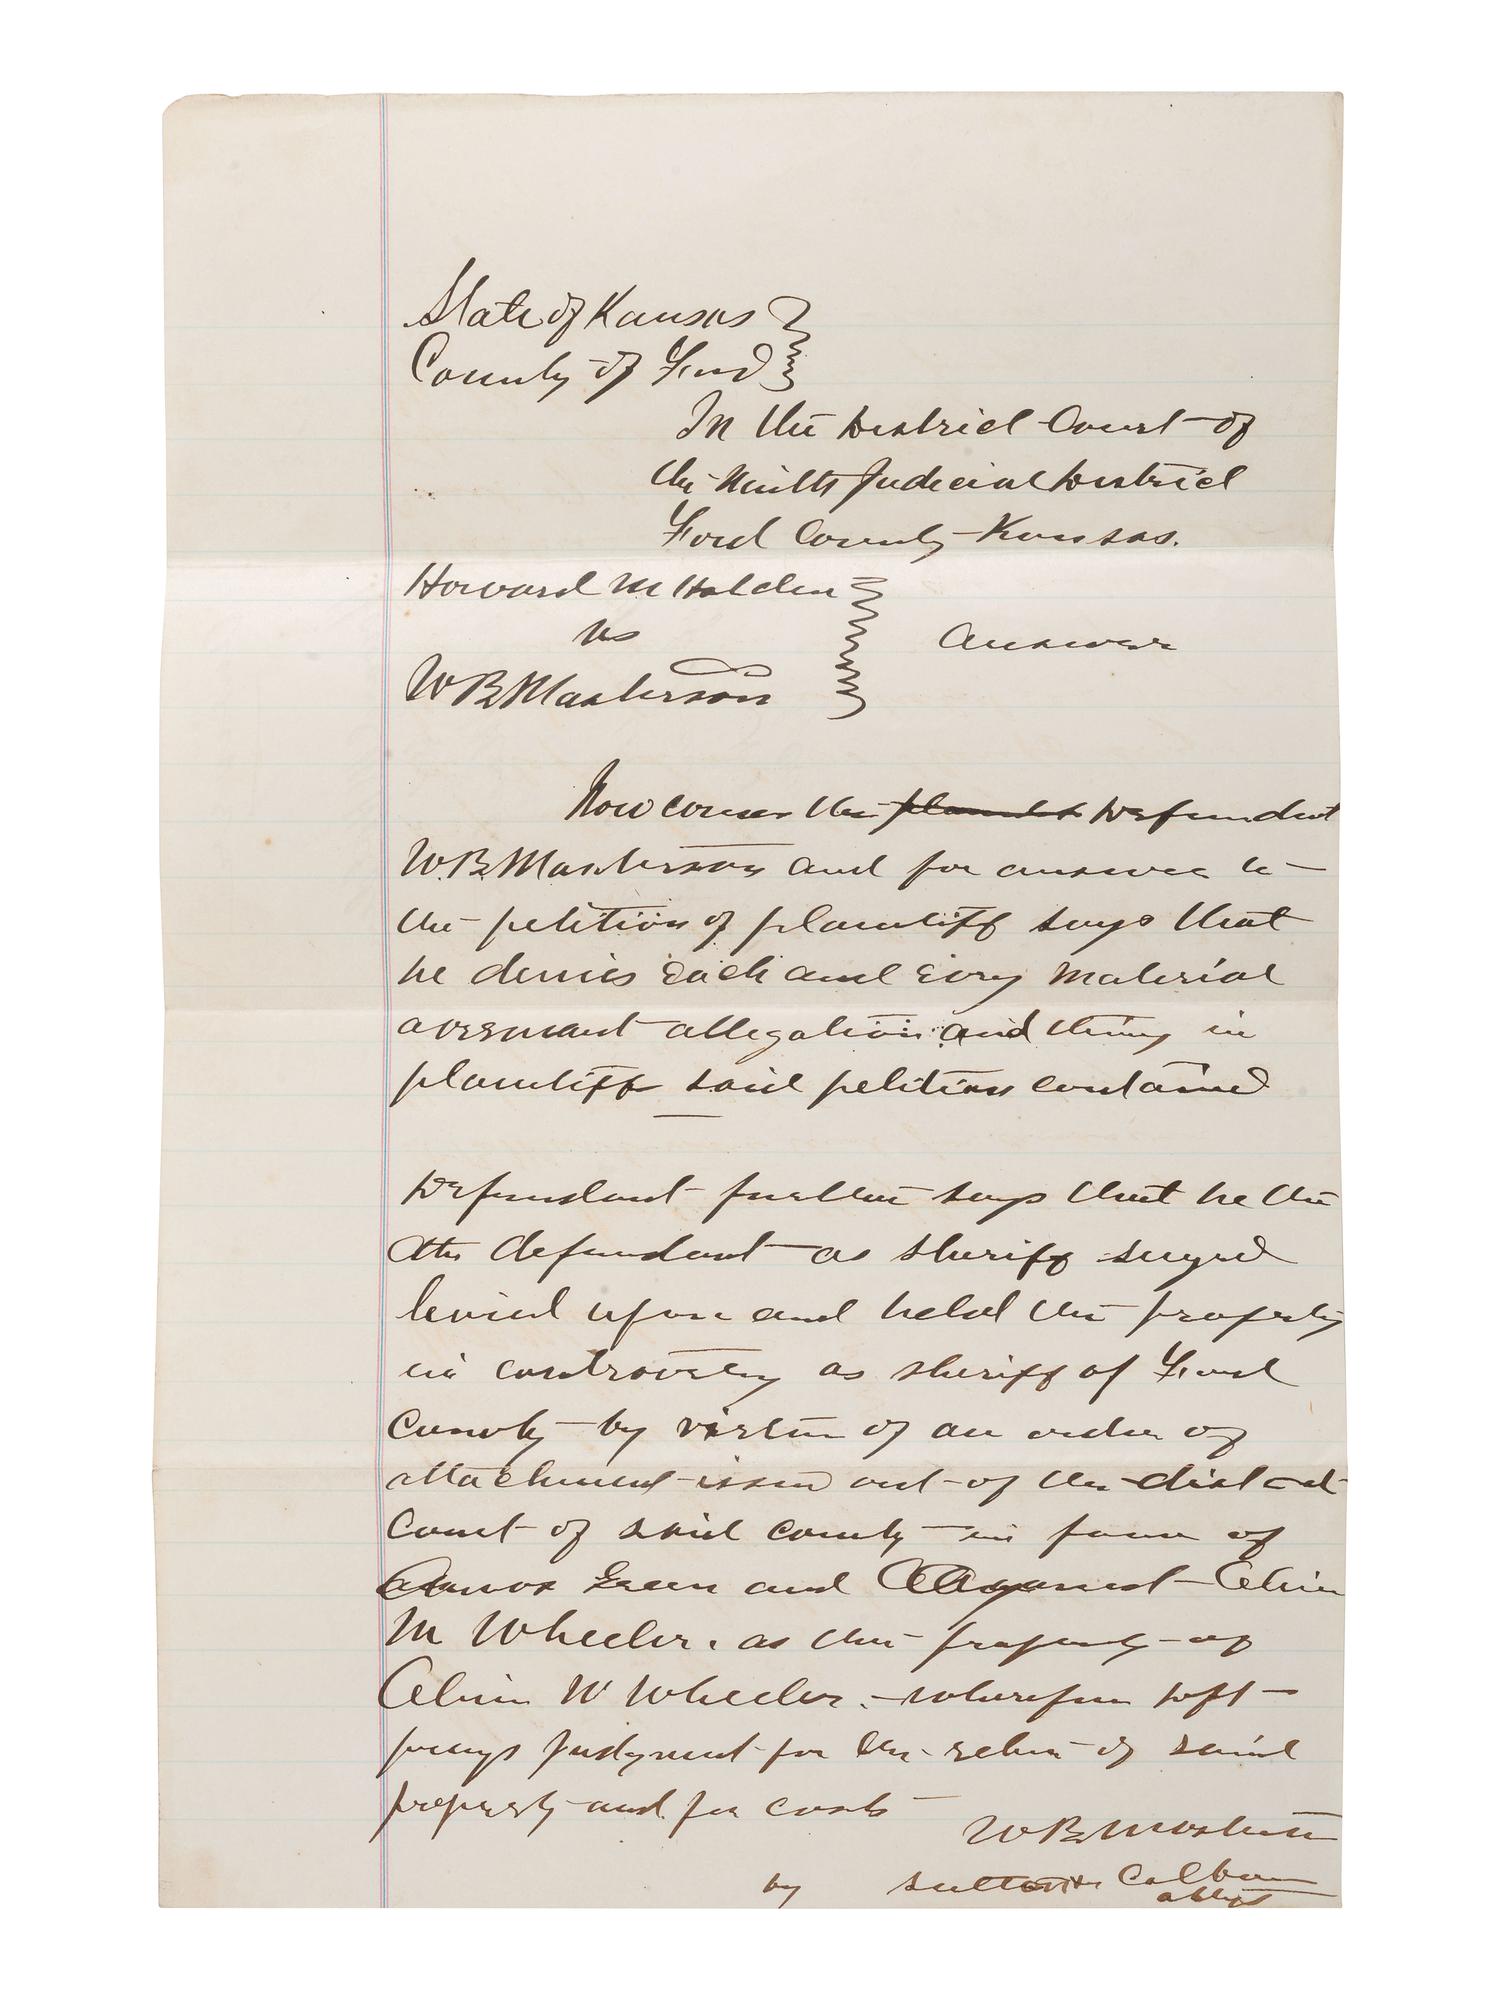 State of Kansas
County of Ford
In the District Court of
the Ninth Judicial District
Ford County Kansas.
Howard M Holden
vs
Answer
W B Masterson
Now comes the Defendant
W.B. Masterson and for answer to
the petition of plaintiff says that
he denies each and every material
averment allegation and thing in
plaintiff said petition contained
Defendant further says that he the
the defendant as sheriff
levied upon and held the property
in controversy as sheriff of Ford
County by virtue of an order of
attachment issued out of the district
Court of said county in favor of
Amos Green and Against Calvin
M Wheeler. as the property of
Calvin W Wheeler. wherefore Deft
prays judgment for the return of said
property and for costs
W B Masterson
by Sutton & Calhoun
attys